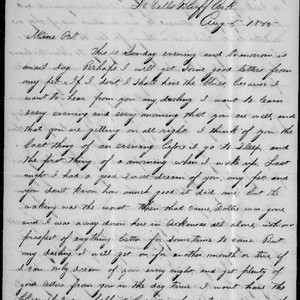 De Valls Bluff Ark
Aug 5 1888
Mine Pet.
This is Sunday evening and tomorrow is
mail day. Perhaps I will get some good letters from
my pet. If I don't I shall have the blues because I
want to hear from you my darling. I want to learn
every evening and every morning that you are well, and
that you are getting on all right. I think of you the
last thing of an evening before I go to sleep. and
the first thing of a morning when I wake up. Last
night I had a good sweet dream of you, my pet and
you don't know how much good it did me. but the
waking was the worst. Then that came, Dollie was
gone and I was away down here in Arkansas all alone with no
prospect of anything better for sometime to come. But
my darling I will get on for another month or two if
I can only dream of you every night, and get plenty of
good letters from you in the day time. I wont have the